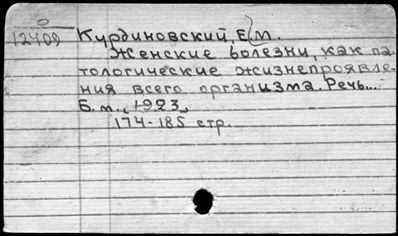 12409 Курдиновский, Е. М.
Женские болезни, как па-
тологические жизнепроявле-
ния всего организма. Речь...
Б. м., 1923,
174-185 стр.